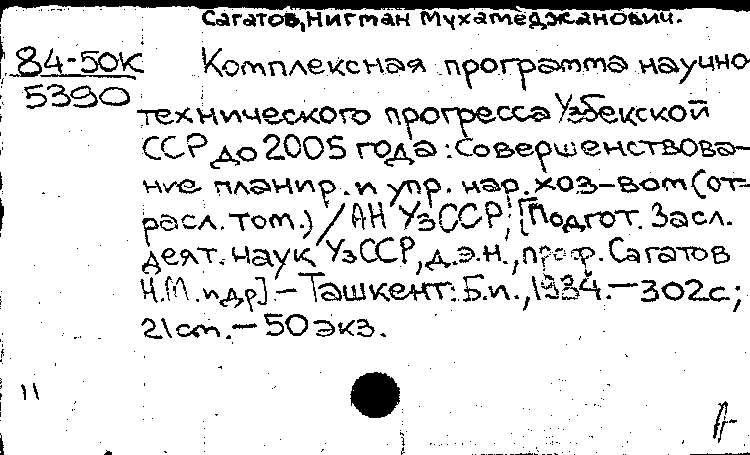 Сагатов, Нигман Мухамеджанович.
84-50К Комплексная программа научно
5390
технического прогресса Узбекской
ССР до 2005 года: Совершенствова-
ние планир. и упр. нар. хоз-вом (от=
расл. том.) / АН УзССР; [Подгот. Засл.
деят. наук УзССР, д.э.н., проф. Сагатов
Н.М. и др]. — Ташкент: Б.и., 1984. — 302с;
21 ст. — 50 экз.
11
А-